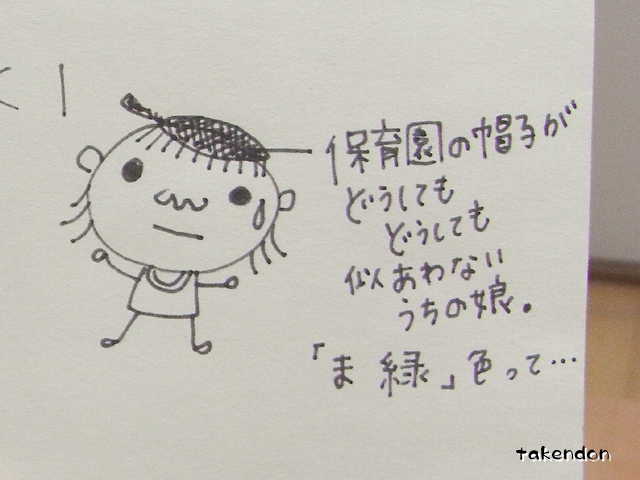 保育園の帽子が
どうしても
どうしても
似あわない
うちの娘。
「ま緑」色って…
takendon